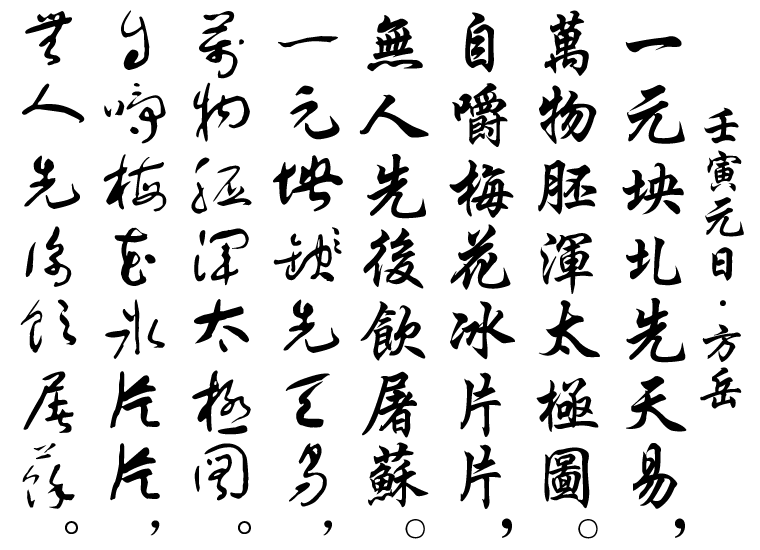 壬寅元日·方岳
一元坱圠先天易，
萬物胚渾太極圖。
自嚼梅花冰片片，
無人先後飲屠蘇。
一元坱圠先天易，
萬物胚渾太極圖。
自嚼梅花冰片片，
無人先後飲屠蘇。